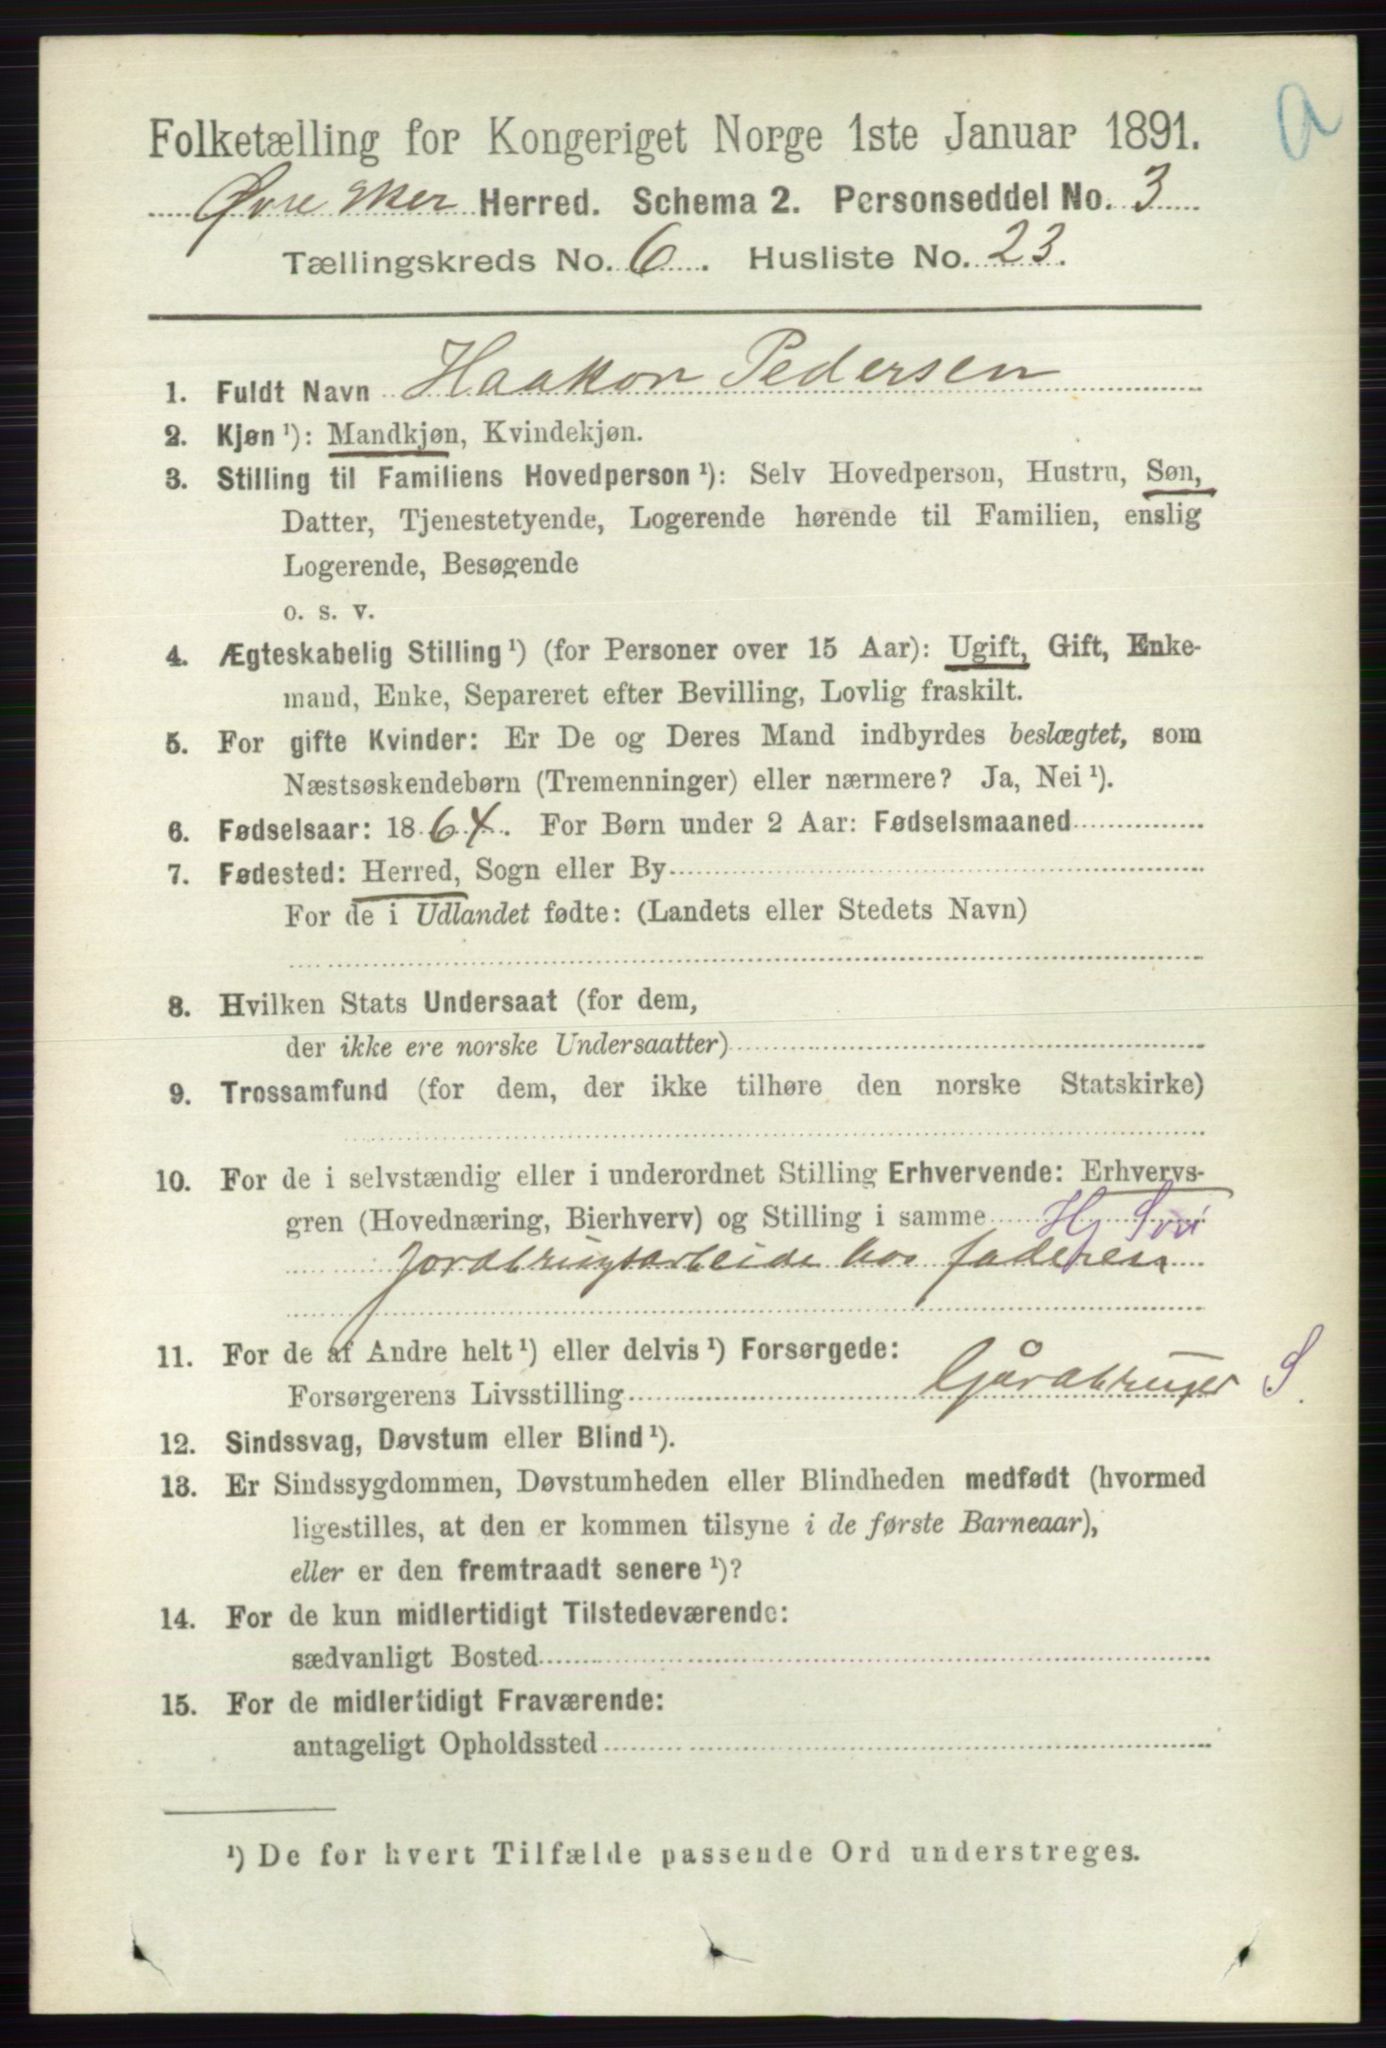 a
Folketælling for Kongeriget Norge 1ste Januar 1891.
Øvre Eker Herred. Schema 2. Personseddel No. 3
Tællingskreds No. 6. Husliste No. 23.
1. Fuldt Navn Haakon Pedersen
2. Kjøn ¹): Mandkjøn, Kvindekjøn.
3. Stilling til Familiens Hovedperson ¹): Selv Hovedperson, Hustru, Søn,
Datter, Tjenestetyende, Logerende hørende til Familien, enslig
Logerende, Besøgende
o. s. v.
4. Ægteskabelig Stilling ¹) (for Personer over 15 Aar): Ugift, Gift, Enke-
mand, Enke, Separeret efter Bevilling, Lovlig fraskilt.
5. For gifte Kvinder: Er De og Deres Mand indbyrdes beslægtet, som
Næstsøskendebørn (Tremenninger) eller nærmere? Ja, Nei ¹).
6. Fødselsaar: 1864. For Børn under 2 Aar: Fødselsmaaned
7. Fødested: Herred, Sogn eller By
For de i Udlandet fødte: (Landets eller Stedets Navn)
8. Hvilken Stats Undersaat (for dem,
der ikke ere norske Undersaatter)
9. Trossamfund (for dem, der ikke tilhøre den norske Statskirke)
10. For de i selvstændig eller i underordnet Stilling Erhvervende: Erhvervs-
gren (Hovednæring, Bierhverv) og Stilling i samme Hj
jordbrugsarbeide hos faderen
11. For de af Andre helt ¹) eller delvis ¹) Forsørgede:
Forsørgerens Livsstilling Gårdbruger S
12. Sindssvag, Døvstum eller Blind ¹).
13. Er Sindssygdommen, Døvstumheden eller Blindheden medfødt (hvormed
ligestilles, at den er kommen tilsyne i de første Barneaar),
eller er den fremtraadt senere ¹)?
14. For de kun midlertidigt Tilstedeværende:
sædvanligt Bosted
15. For de midlertidigt Fraværende:
antageligt Opholdssted
¹) De for hvert Tilfælde passende Ord understreges.